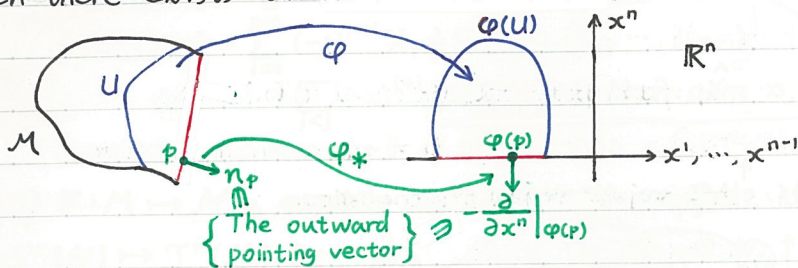 φ φ(U) xⁿ
U ℝⁿ
M p φ* φ(p) x¹, ⋯, xⁿ⁻¹
nₚ
⋒
{ The outward pointing vector } ∋ -∂/∂xⁿ|φ(p)